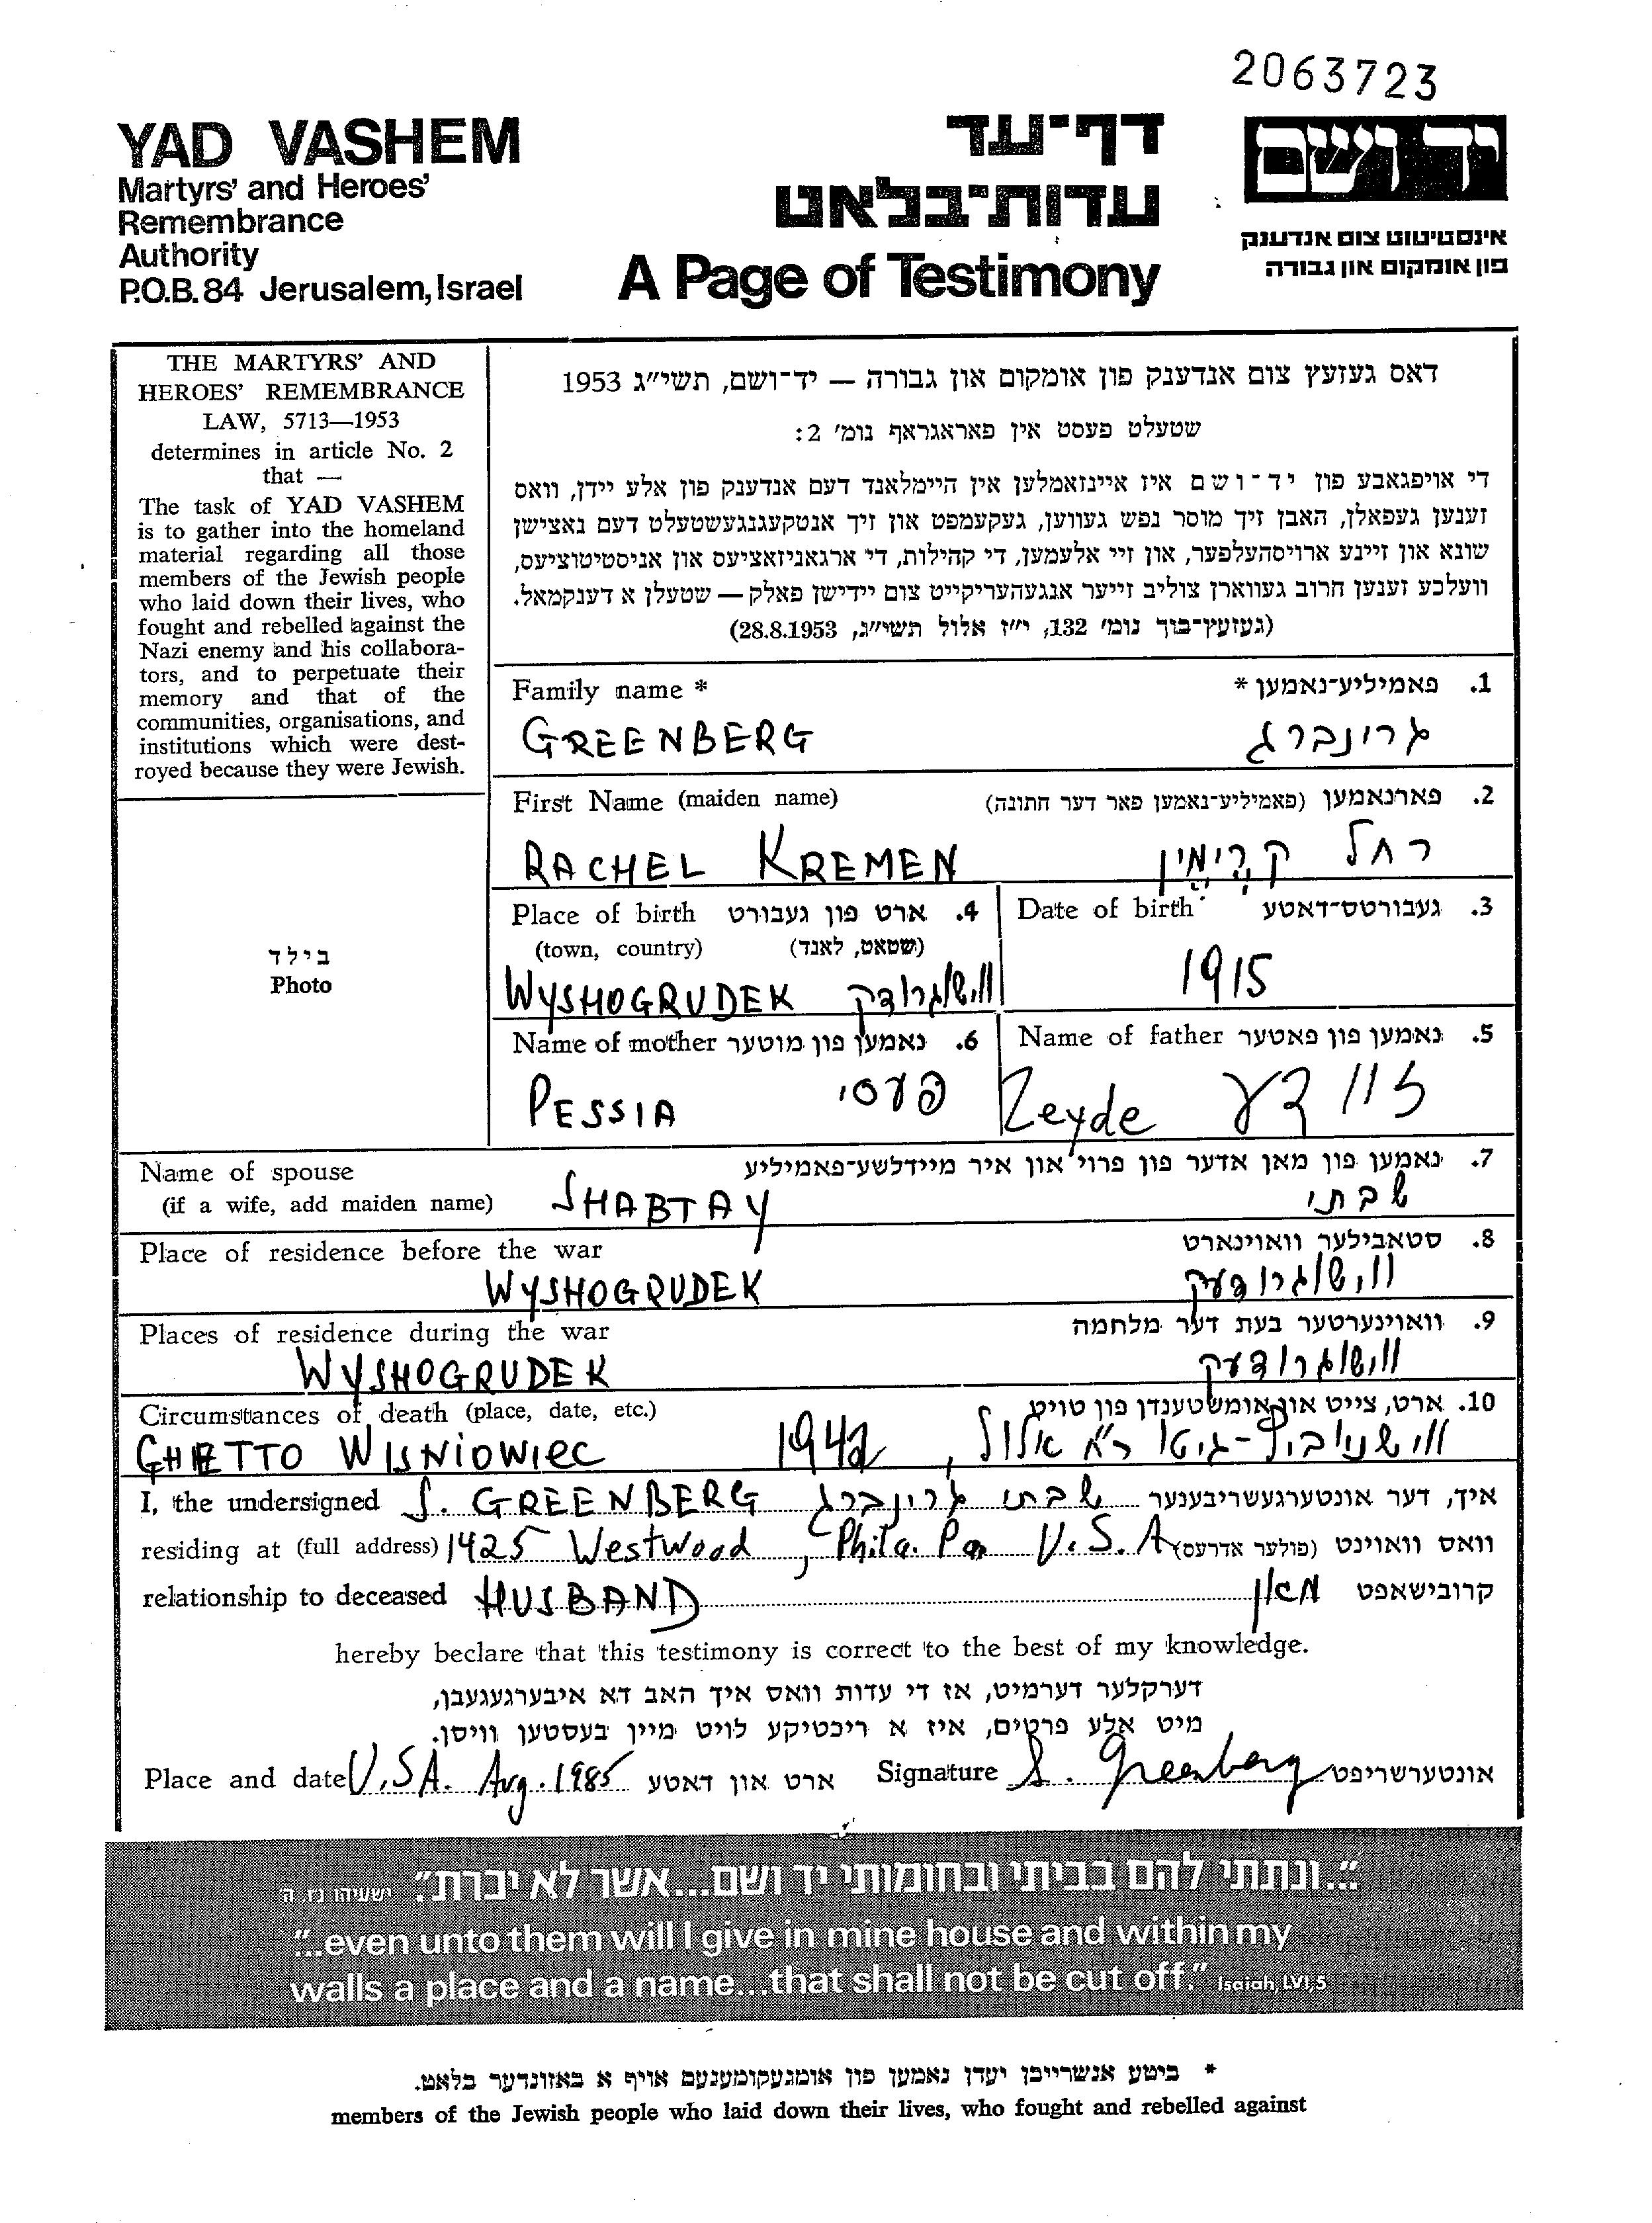 2063723
YAD VASHEM
Martyrs' and Heroes'
Remembrance
Authority
P.O.B. 84 Jerusalem, Israel
דף־עד
עדות־בלאט
A Page of Testimony
יד ושם
אינסטיטוט צום אנדענק
פון אומקום און גבורה
THE MARTYRS' AND
HEROES' REMEMBRANCE
LAW, 5713—1953
determines in article No. 2
that —
The task of YAD VASHEM
is to gather into the homeland
material regarding all those
members of the Jewish people
who laid down their lives, who
fought and rebelled against the
Nazi enemy and his collabora-
tors, and to perpetuate their
memory and that of the
communities, organisations, and
institutions which were dest-
royed because they were Jewish.
דאס געזעץ צום אנדענק פון אומקום און גבורה — יד־ושם, תשי״ג 1953
שטעלט פעסט אין פאראגראף נומ׳ 2:
די אויפגאבע פון יד־ושם איז איינזאמלען אין היימלאנד דעם אנדענק פון אלע יידן, וואס
זענען געפאלן, האבן זיך מוסר נפש געווען, געקעמפט און זיך אנטקעגנגעשטעלט דעם נאצישן
שונא און זיינע ארויסהעלפער, און זיי אלעמען, די קהילות, די ארגאניזאציעס און אניסטיטוציעס,
וועלכע זענען חרוב געווארן צוליב זייער אנגעהעריקייט צום יידישן פאלק — שטעלן א דענקמאל.
(געזעץ־בוך נומ׳ 132, י״ז אלול תשי״ג, 28.8.1953)
בילד
Photo
Family name * פאמיליע־נאמען * .1
GREENBERG גרונברג
First Name (maiden name) פארנאמען (פאמיליע־נאמען פאר דער חתונה) .2
RACHEL KREMEN רחל קרימין
Place of birth ארט פון געבורט .4 Date of birth געבורטס־דאטע .3
(town, country) (שטאט, לאנד)
WYSHOGRUDEK ווישוגרודק 1915
Name of mother נאמען פון מוטער .6 Name of father נאמען פון פאטער .5
PESSIA פעסי Zeyde זיידע
Name of spouse נאמען פון מאן אדער פון פרוי און איר מיידלשע־פאמיליע .7
(if a wife, add maiden name) SHABTAY שבתי
Place of residence before the war סטאבילער וואוינארט .8
WYSHOGRUDEK ווישוגרודעק
Places of residence during the war וואוינערטער בעת דער מלחמה .9
WYSHOGRUDEK ווישוגרודעק
Circumstances of death (place, date, etc.) ארט, צייט און אומשטענדן פון טויט .10
GHETTO WISNIOWIEC 1942 ווישניוביץ-גיטו ר״א אלול,
I, the undersigned S. GREENBERG שבתי גרונברג איך, דער אונטערגעשריבענער
residing at (full address) 1425 Westwood, Phila. Pa U.S.A וואס וואוינט (פולער אדרעס)
relationship to deceased HUSBAND מאן קרובישאפט
hereby beclare that this testimony is correct to the best of my knowledge.
דערקלער דערמיט, אז די עדות וואס איך האב דא איבערגעגעבן,
מיט אלע פרטים, איז א ריכטיקע לויט מיין בעסטען וויסן.
Place and date U.S.A. Aug. 1985 ארט און דאטע Signature S. Greenberg אונטערשריפט
"...ונתתי להם בביתי ובחומותי יד ושם...אשר לא יכרת." ישעיהו נ״ו, ה
"...even unto them will I give in mine house and within my
walls a place and a name...that shall not be cut off." Isaiah, LVI,5
* ביטע אנשרייבן יעדן נאמען פון אומגעקומענעם אויף א באזונדער בלאט.
members of the Jewish people who laid down their lives, who fought and rebelled against